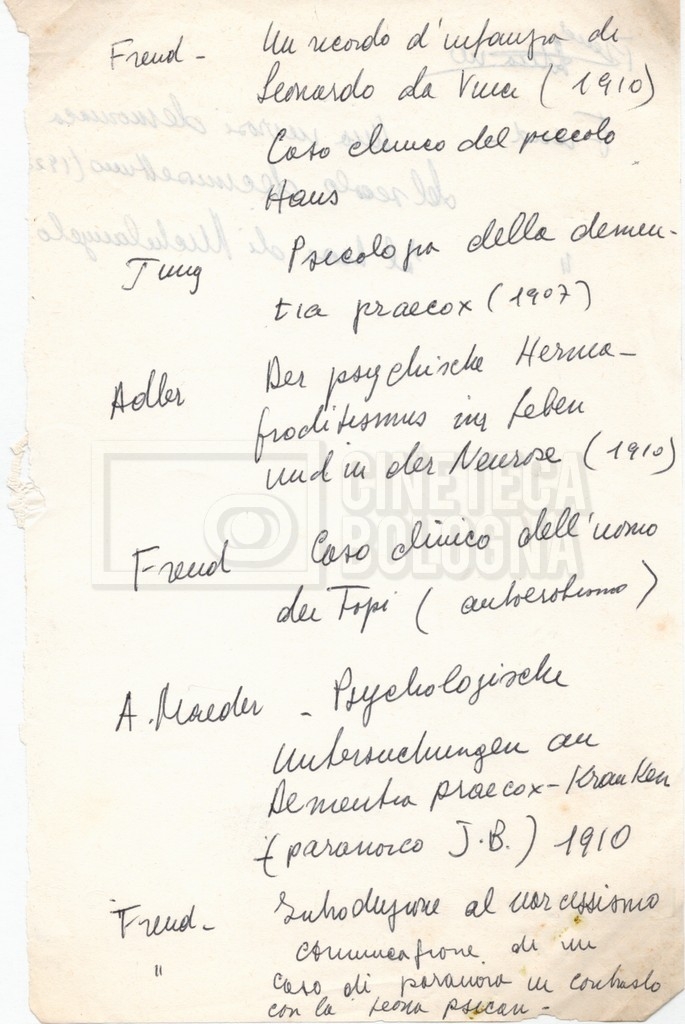 Freud - Un ricordo d'infanzia di
Leonardo da Vinci (1910)
Caso clinico del piccolo
Hans
Jung Psicologia della demen-
tia praecox (1907)
Adler Der psychische Herma-
froditismus im Leben
und in der Neurose (1910)
CINETECA
BOLOGNA
Freud Caso clinico dell'uomo
dei Topi (autoerotismo)
A. Maeder - Psychologische
Untersuchungen an
Dementia praecox-Kranken
(paranoico J.B.) 1910
Freud - Introduzione al narcissismo
" comunicazione di un
caso di paranoia in contrasto
con la teoria psican -